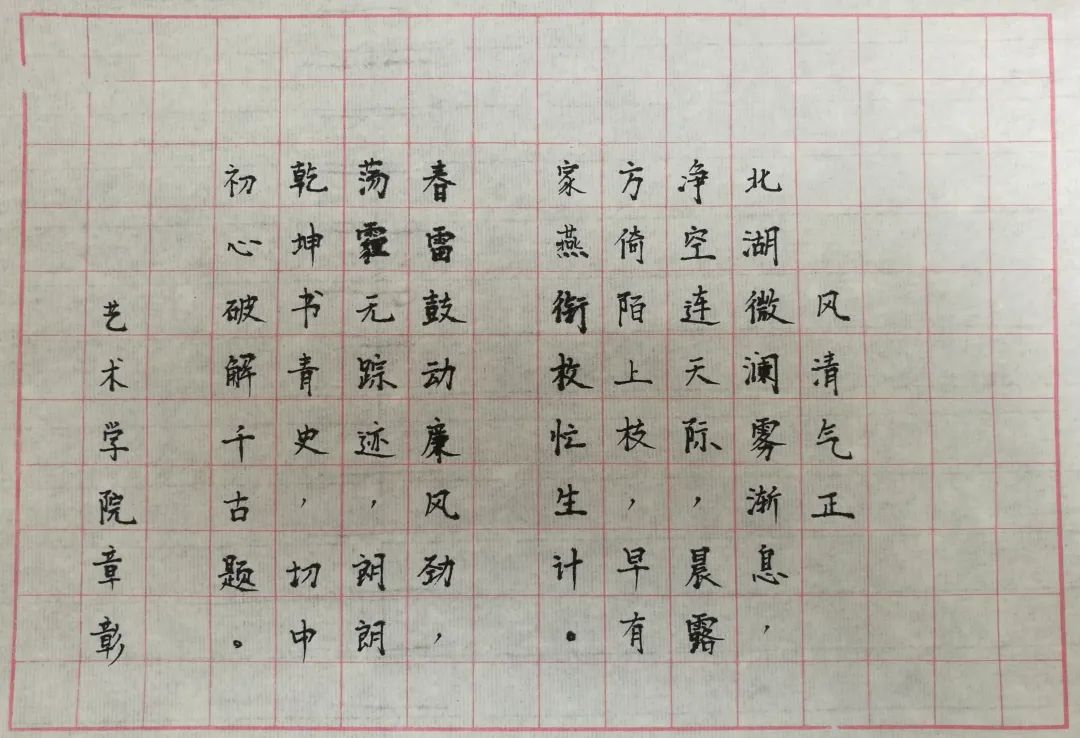 风清气正
北湖微澜雾渐息，
净空连天际，晨露
方倚陌上枝，早有
家燕衔枚忙生计。
春雷鼓动廉风劲，
荡霾无踪迹，朗朗
乾坤书青史，切中
初心破解千古题。
艺术学院章彰